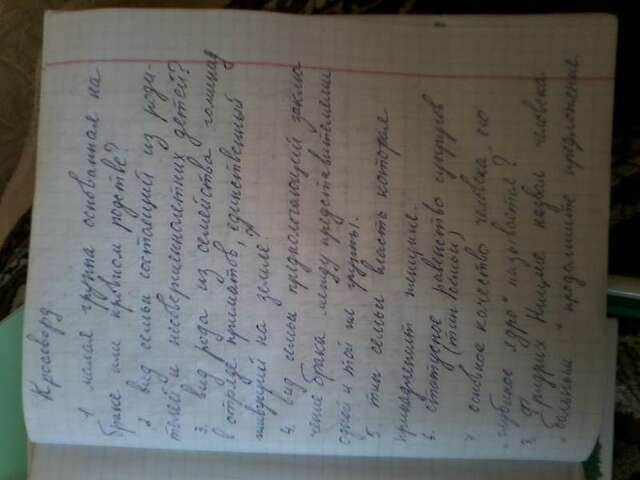 Кроссворд
1 малая группа основанная на
браке или кровном родстве?
2 вид семьи состоящий из роди-
телей и несовершеннолетних детей?
3. вид рода из семейства гоминид
в отряде приматов, единственный
живущий на земле?
4. вид семьи предполагающий заклю
чение брака между представителями
одной и той же группы.
5 тип семьи власть которая
принадлежит женщине.
6. статусное равенство супругов
(тип семьи)
7 особное качество человека его
"глубокое ядро" называется?
8. Фридрих Ницше назвал человека
больным " продолжите предложение